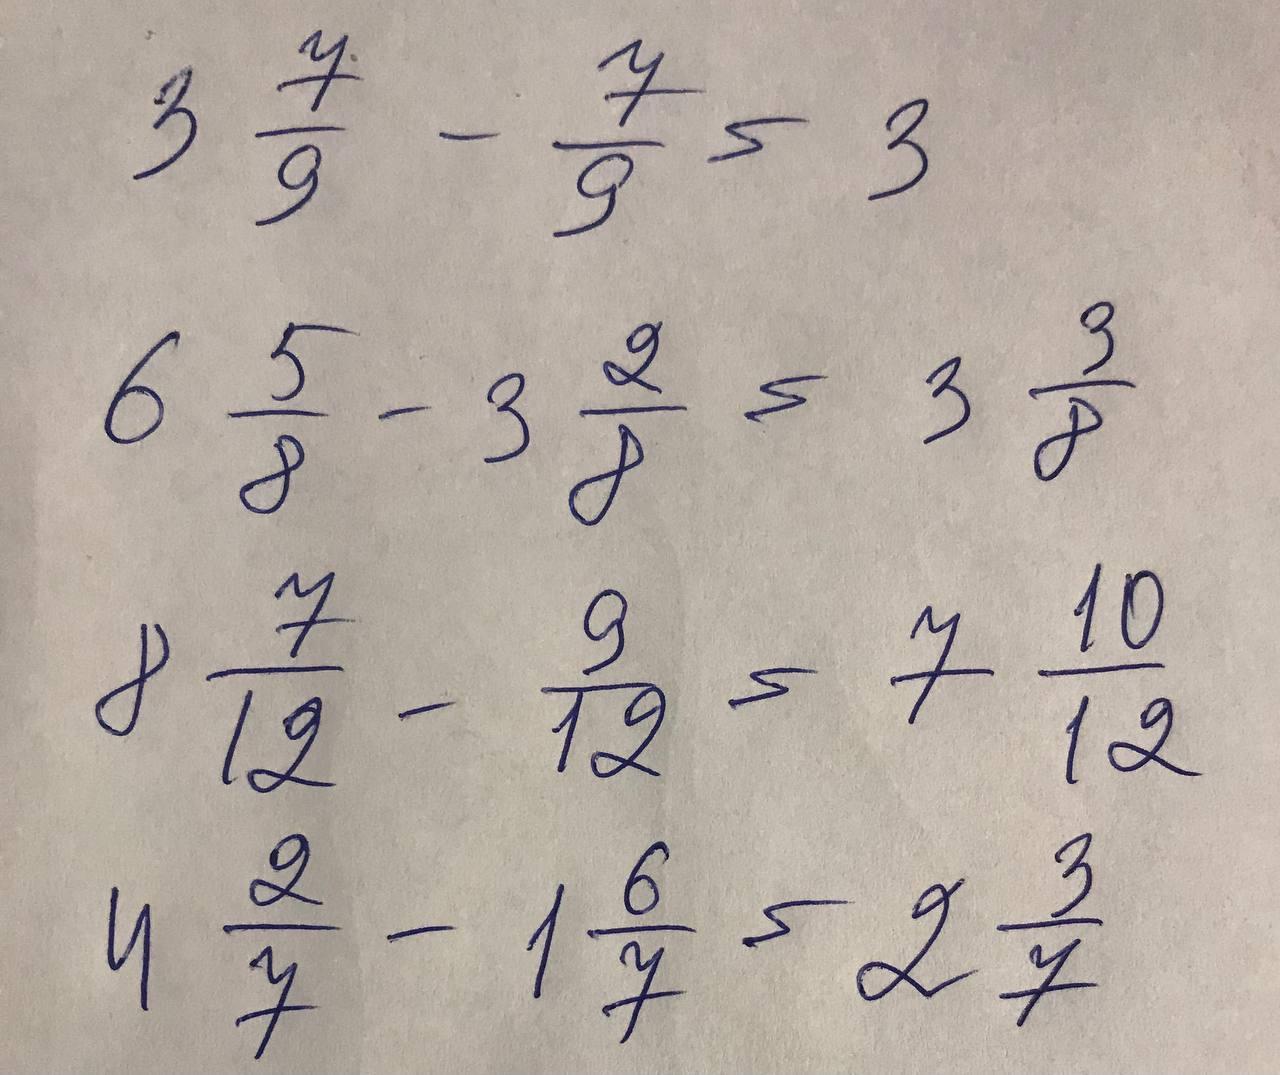 3 7/9 - 7/9 = 3
6 5/8 - 3 2/8 = 3 3/8
8 7/12 - 9/12 = 7 10/12
4 2/7 - 1 6/7 = 2 3/7